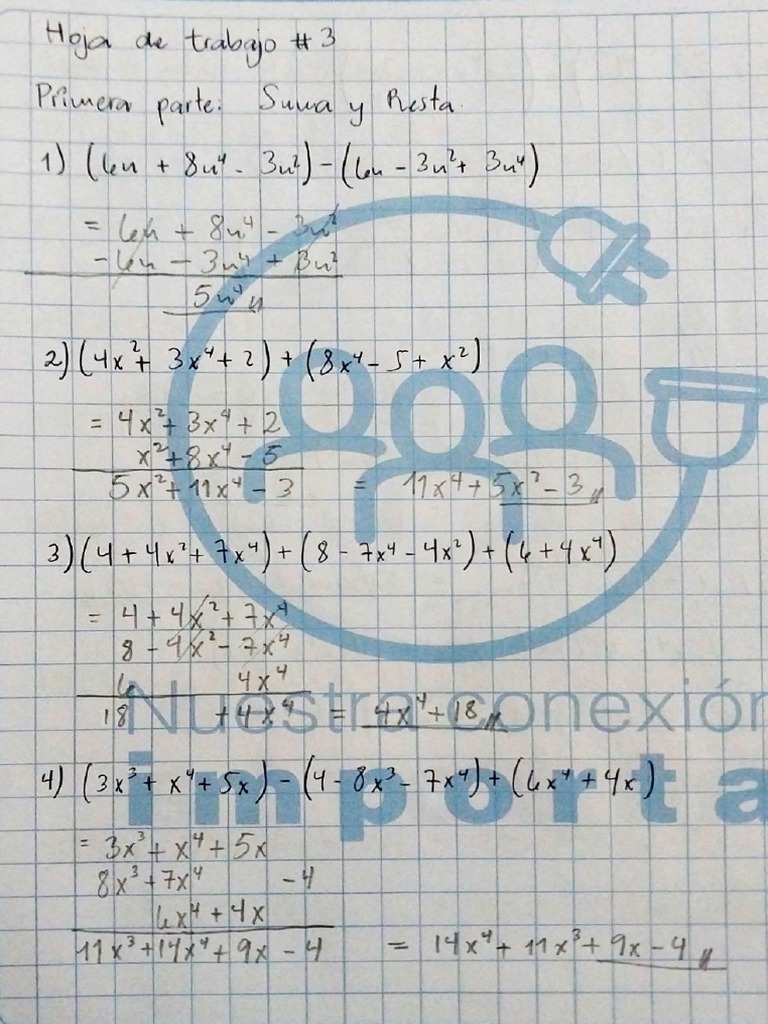 Hoja de trabajo #3
Primera parte: Suma y Resta.
1) (6n + 8n⁴ - 3n²) - (6n - 3n² + 3n⁴)
= 6n + 8n⁴ - 3n²
- 6n - 3n⁴ + 3n²
5n⁴
2) (4x² + 3x⁴ + 2) + (8x⁴ - 5 + x²)
= 4x² + 3x⁴ + 2
x² + 8x⁴ - 5
5x² + 11x⁴ - 3 = 11x⁴ + 5x² - 3
3) (4 + 4x² + 7x⁴) + (8 - 7x⁴ - 4x²) + (6 + 4x⁴)
= 4 + 4x² + 7x⁴
8 - 4x² - 7x⁴
6 4x⁴
18 + 4x⁴ = 4x⁴ + 18
Nuestra conexión
4) (3x³ + x⁴ + 5x) - (4 - 8x³ - 7x⁴) + (6x⁴ + 4x)
importa
= 3x³ + x⁴ + 5x
8x³ + 7x⁴ - 4
6x⁴ + 4x
11x³ + 14x⁴ + 9x - 4 = 14x⁴ + 11x³ + 9x - 4